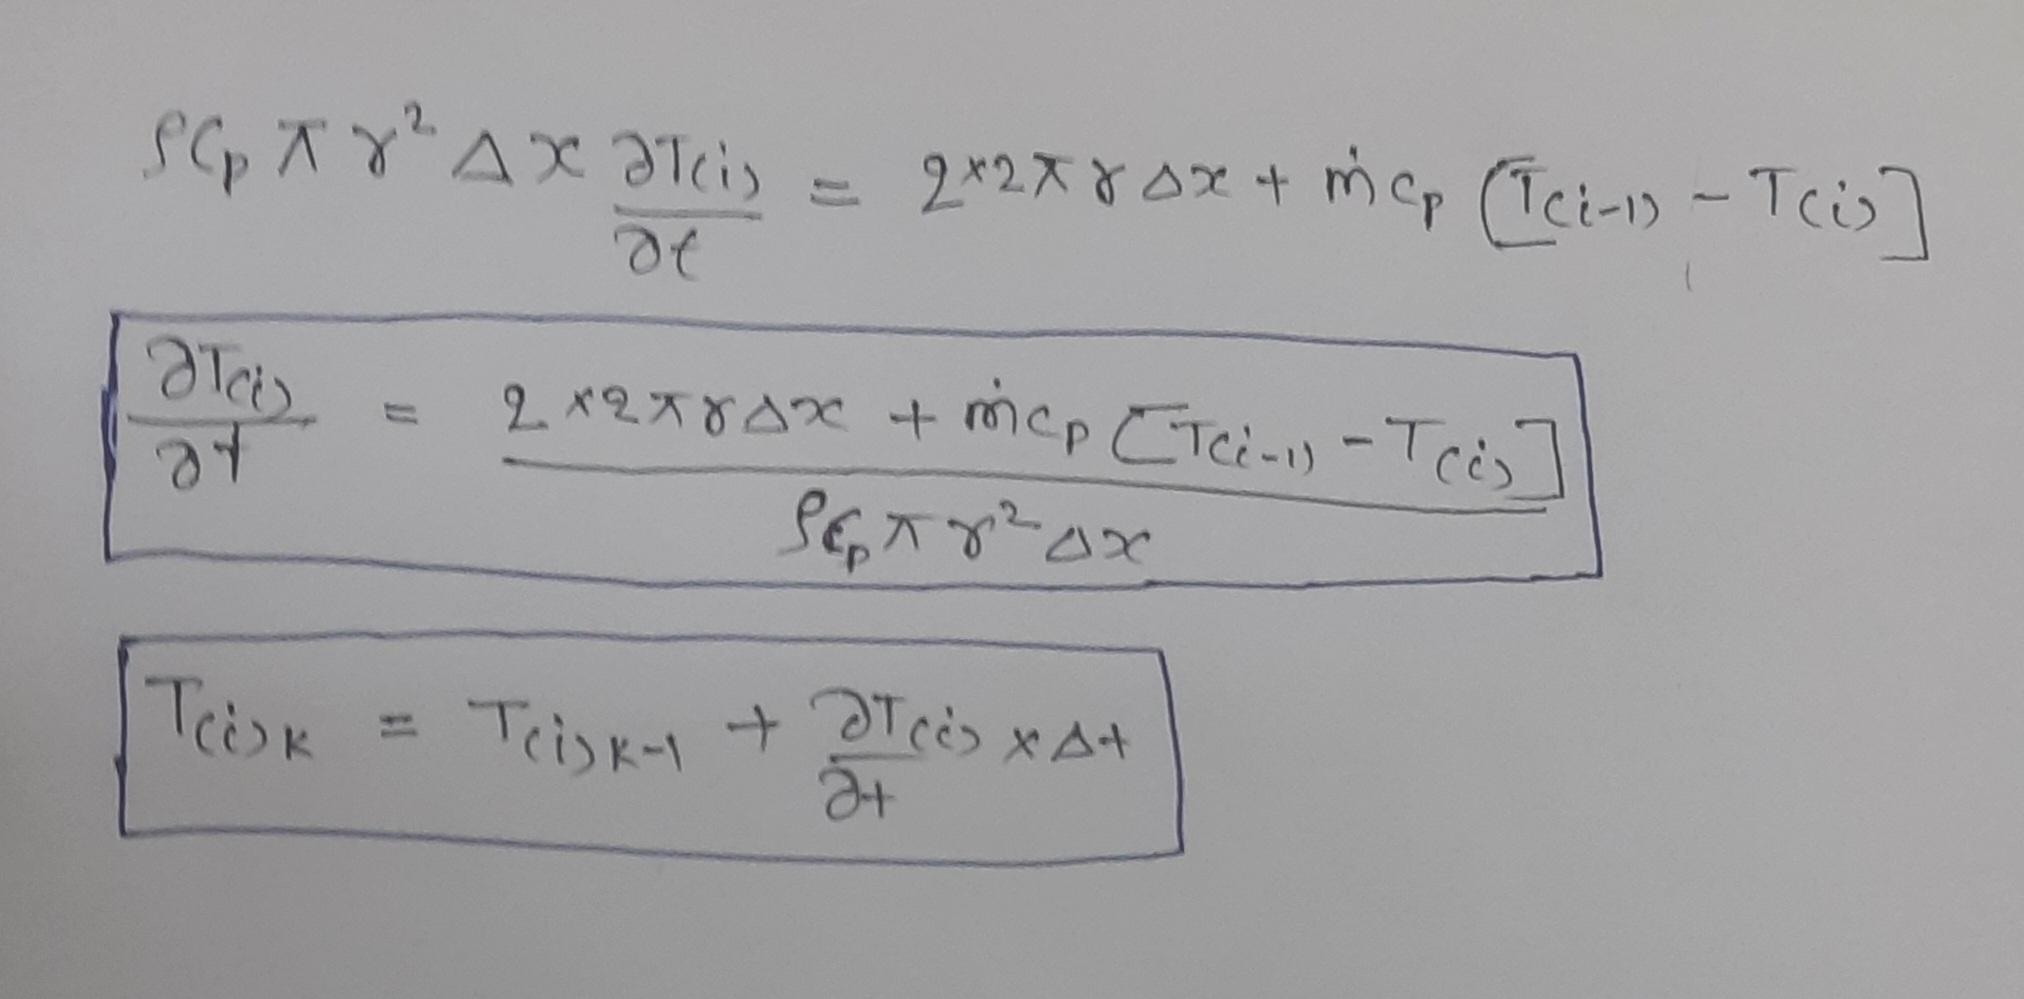 ρCp π r² Δx ∂T(i)/∂t = 2×2πrΔx + ṁcp [T(i-1) - T(i)]
∂T(i)/∂t = 2×2πrΔx + ṁcp [T(i-1) - T(i)] / ρCpπr²Δx
T(i)K = T(i)K-1 + ∂T(i)/∂t × Δt